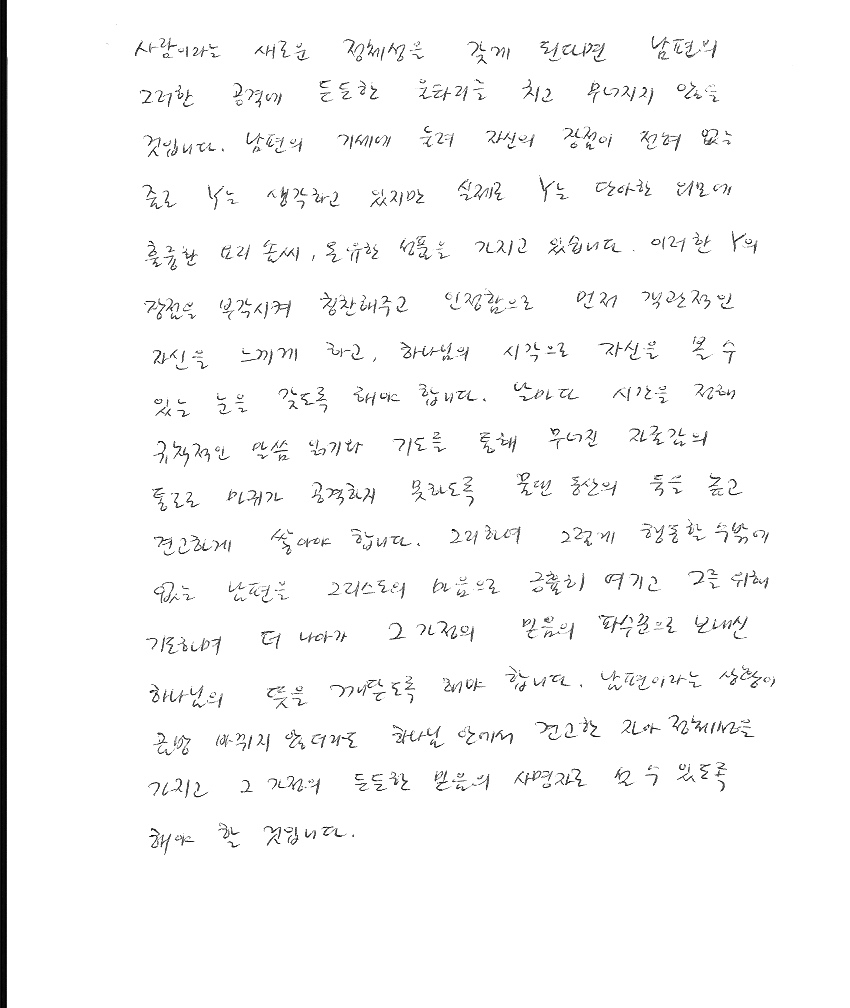 사람이라는 새로운 정체성을 갖게 된다면 남편의
그러한 공격에 든든한 울타리를 치고 무너지지 않을
것입니다. 남편의 기세에 눌려 자신의 장점이 전혀 없는
줄로 Y는 생각하고 있지만 실제로 Y는 단아한 외모에
훌륭한 요리 솜씨, 온유한 성품을 가지고 있습니다. 이러한 Y의
장점을 부각시켜 칭찬해주고 인정함으로 먼저 객관적인
자신을 느끼게 하고, 하나님의 시각으로 자신을 볼 수
있는 눈을 갖도록 해야 합니다. 날마다 시간을 정해
규칙적인 말씀 읽기와 기도를 통해 무너진 자존감의
통로로 마귀가 공격하지 못하도록 물댄 동산의 둑을 높고
견고하게 쌓아야 합니다. 그리하여 그렇게 행동할 수밖에
없는 남편을 그리스도의 마음으로 긍휼히 여기고 그를 위해
기도하며 더 나아가 그 가정의 믿음의 파수꾼으로 보내신
하나님의 뜻을 깨닫도록 해야 합니다. 남편이라는 상황이
금방 바뀌지 않더라도 하나님 안에서 견고한 자아 정체성을
가지고 그 가정의 든든한 믿음의 사명자로 설 수 있도록
해야 할 것입니다.